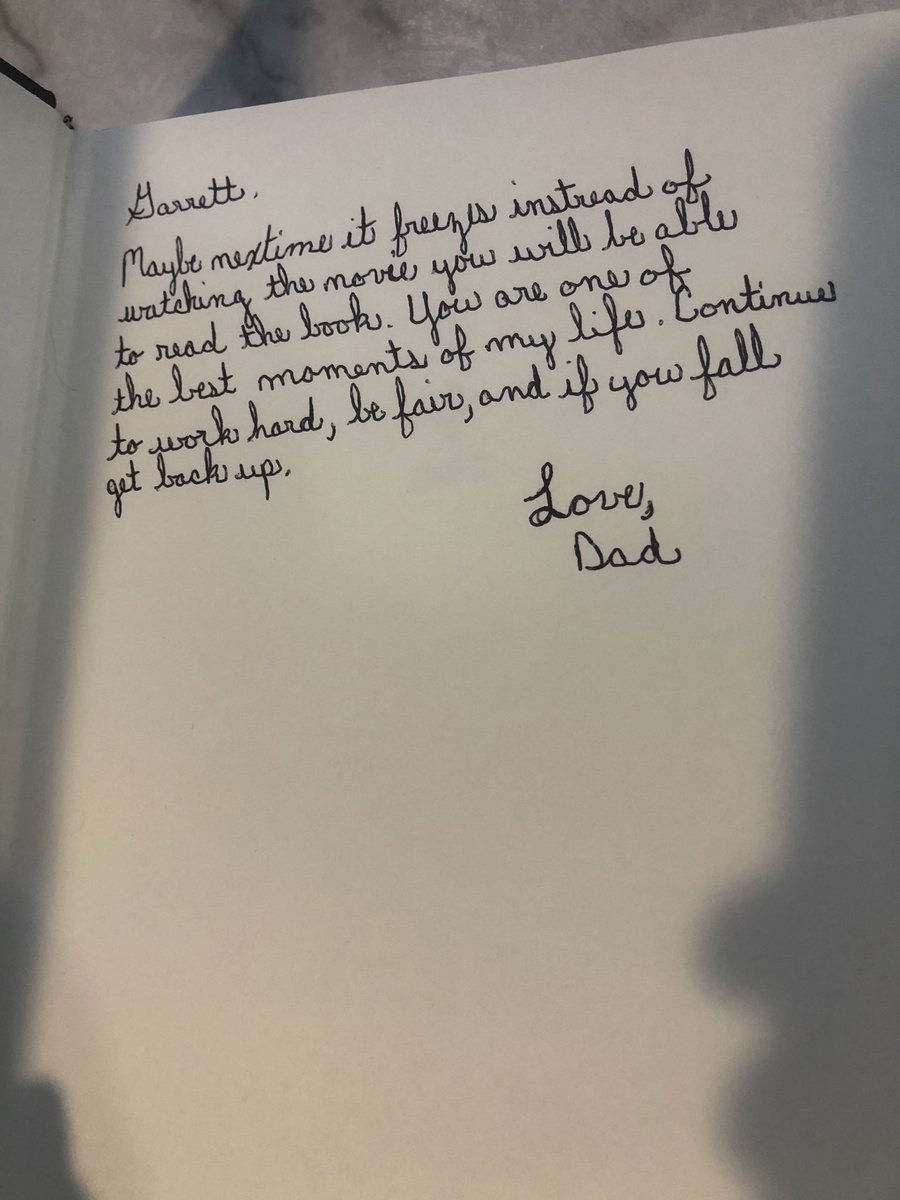 Garrett,
Maybe nextime it freezes instread of
watching the movie you will be able
to read the book. You are one of
the best moments of my life. Continue
to work hard, be fair, and if you fall
get back up.
Love,
Dad